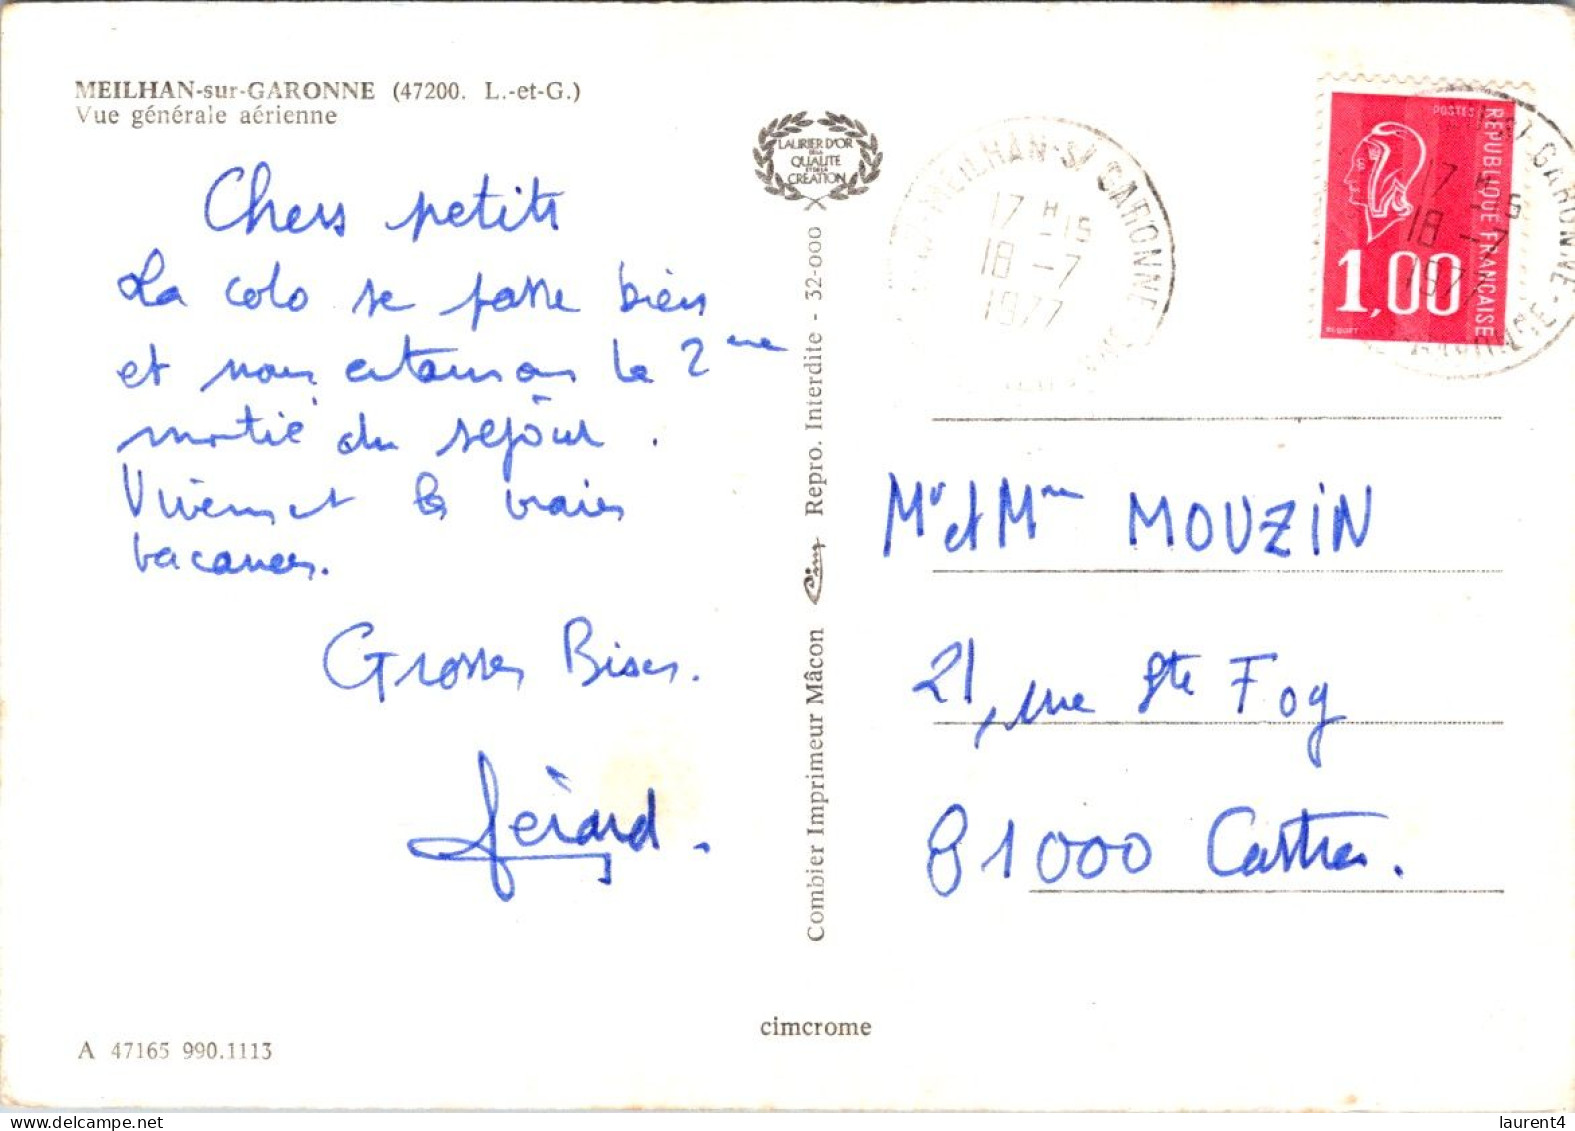 MEILHAN-sur-GARONNE (47200. L.-et-G.)
Vue générale aérienne
Chers petits
La colo se passe bien
et nous entamons la 2ème
moitié du séjour.
Vivement les vraies
vacances.
Grosses Bises.
Gérard.
A 47165 990.1113
LAURIER D'OR
DE LA
QUALITE
ET DE LA
CREATION
Combier Imprimeur Mâcon Cim Repro. Interdite - 32-000
cimcrome
MEILHAN-S/GARONNE
17 H 15
18 -7
1977
POSTES
REPUBLIQUE FRANÇAISE
1,00
BEQUET
GARONNE
17 H 15
18 -7
1977
Mr et Mme MOUZIN
21, rue Ste Foy
81000 Castres.
laurent4